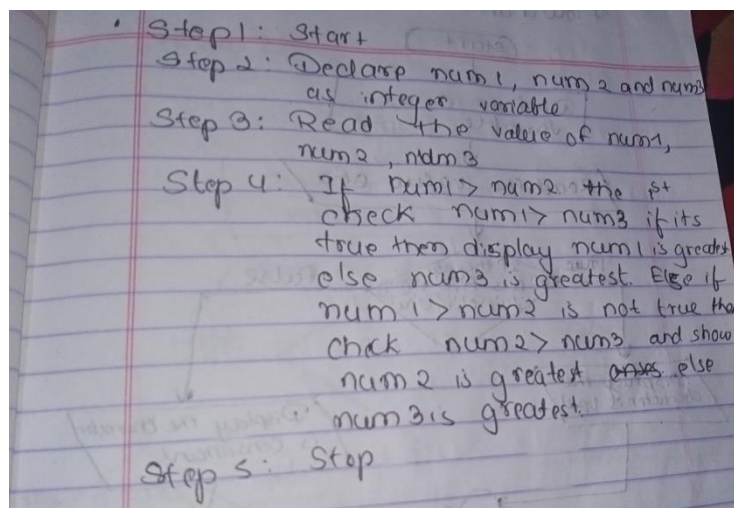 Step1: Start
Step 2: Declare num1, num2 and num3
as integer variable
Step 3: Read the value of num1,
num2, num3
Step 4: If num1> num2 the
check num1> num3 if its
true then display num1 is greatest
else num3 is greatest. Else if
num1>num2 is not true the
chack num2> num3 and show
num2 is greatest else
num3is greatest.
Step 5: Stop